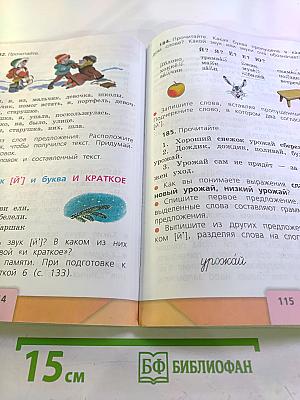 Прочитайте.
и, и, на, мальчик, девочка, школы,
помог встать, и, портфель, девоч
и, упала, поскользнулась.
на, было, улице.
старушка, них, шла.
предложения. Расположите
чтобы получился текст. Придумай
словок и составленный текст.
к [й'] и буква И КРАТКОЕ
ели,
белели.
звук [й']? В каком из них
вой «и краткое»?
памяти. При подготовке к
кой 6 (с. 133).
184. Прочитайте. Какая буква пропущена в каж
дом слове? Какой звук или звуки она обозначает?
Й? Я? Е? Ё? Ю?
Запишите слова, вставляя пропущенные
Подчеркните слово, в котором два соглас
185. Прочитайте.
1. Хороший снежок урожай сбереж
2. Дождик, дождик, поливай, бу
урожай!
3. Урожай сам не придёт — за
жен уход.
Как вы понимаете выражения сла
новый урожай, низкий урожай?
Спишите первое предложение.
выделенные слова составляют грам
предложения.
Выпишите из других предложен
ком [й'], разделяя слова на слоги
урожай
115
15 см
БФ БИБЛИОФАН